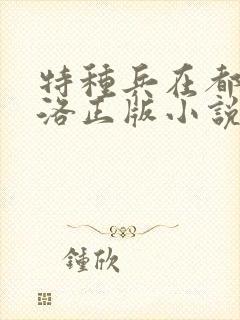 特種兵在都
洛正版小說
鍾欣